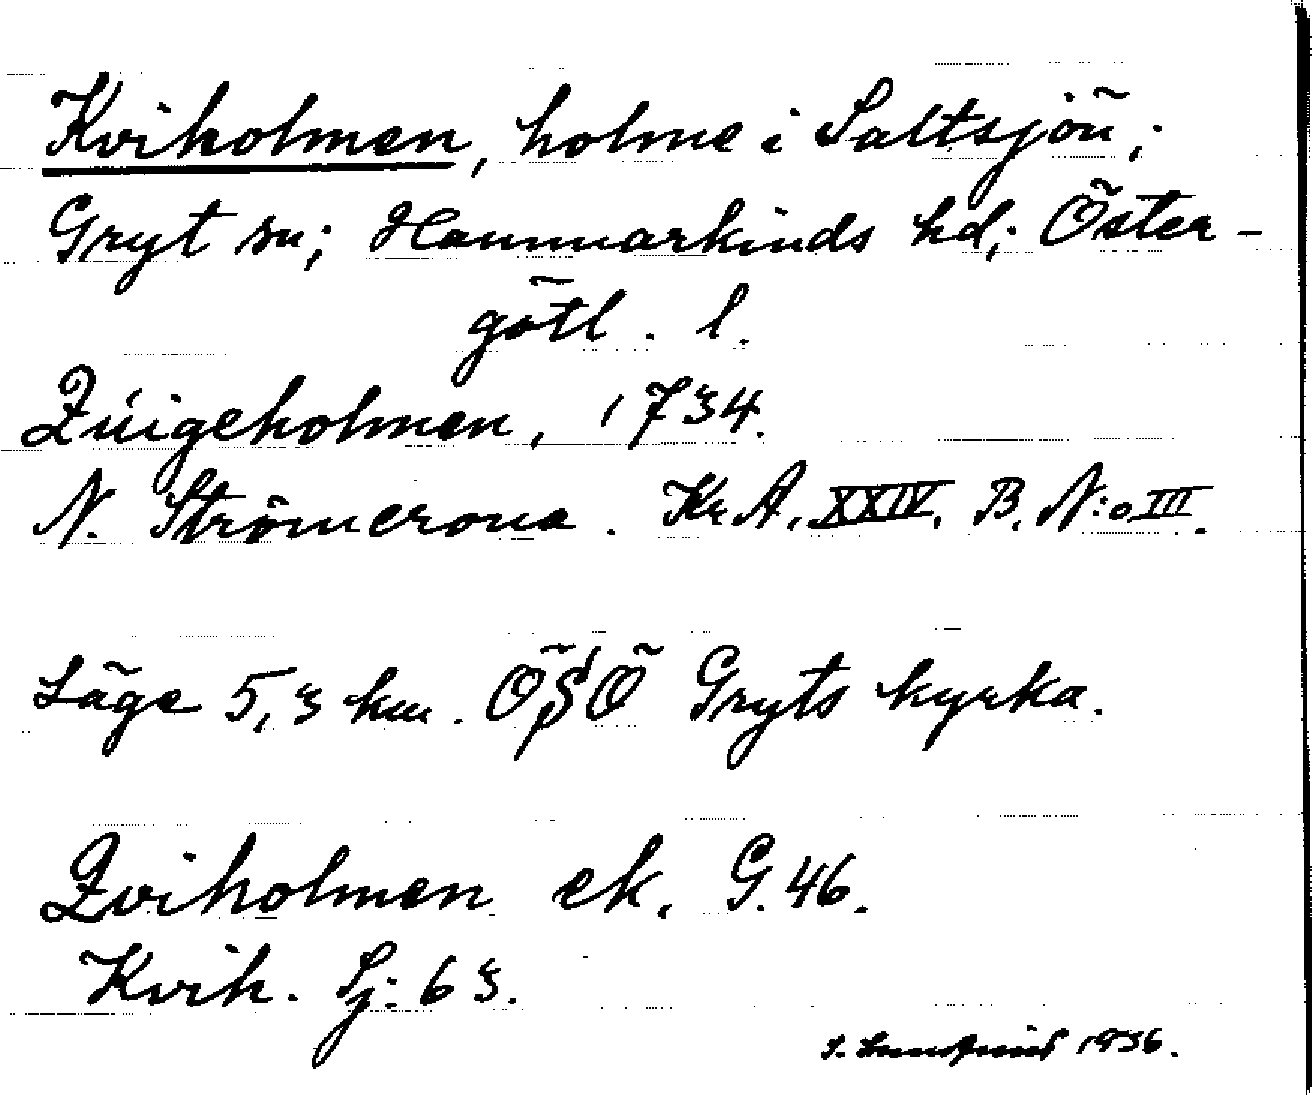 Kviholmen, holme i Saltsjön;
Gryt sn; Hammarkinds hd; Öster-
götl. l.
Quigeholmen, 1734.
N. Strömcrona. Kr. A. XXIV. B. N:o III.
Läge 5,3 km. ÖSÖ Gryts kyrka.
Qviholmen ek. G. 46.
Kvih. Sj: 63.
1936.